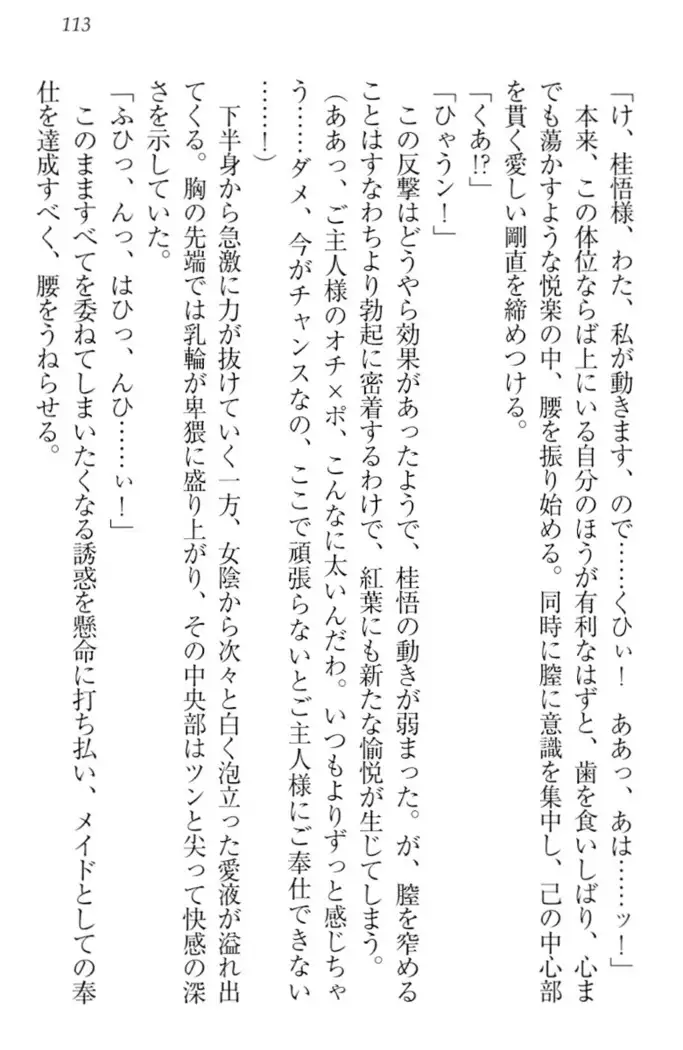 113
「け、桂悟様、わた、私が動きます、ので……くひぃ！　ああっ、あは……ッ！」
　本来、この体位ならば上にいる自分のほうが有利なはずと、歯を食いしばり、心ま
でも蕩かすような悦楽の中、腰を振り始める。同時に膣に意識を集中し、己の中心部
を貫く愛しい剛直を締めつける。
「くあ!?」
「ひゃうン！」
　この反撃はどうやら効果があったようで、桂悟の動きが弱まった。が、膣を窄める
ことはすなわちより勃起に密着するわけで、紅葉にも新たな愉悦が生じてしまう。
（ああっ、ご主人様のオチ×ポ、こんなに太いんだわ。いつもよりずっと感じちゃ
う……ダメ、今がチャンスなの、ここで頑張らないとご主人様にご奉仕できない
……！）
　下半身から急激に力が抜けていく一方、女陰から次々と白く泡立った愛液が溢れ出
てくる。胸の先端では乳輪が卑猥に盛り上がり、その中央部はツンと尖って快感の深
さを示していた。
「ふひっ、んっ、はひっ、んひ……ぃ！」
　このまますべてを委ねてしまいたくなる誘惑を懸命に打ち払い、メイドとしての奉
仕を達成すべく、腰をうねらせる。